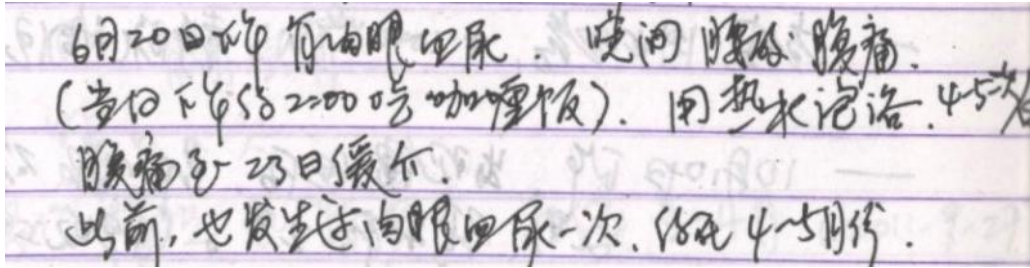 6月20日下午有肉眼血尿. 晚间腰及腹痛.
(当日下午约2:00吃咖喱饭). 用热水泡浴. 4~5次
腹痛至23日缓介.
此前, 也发生过肉眼血尿一次. 约在4~5月份.